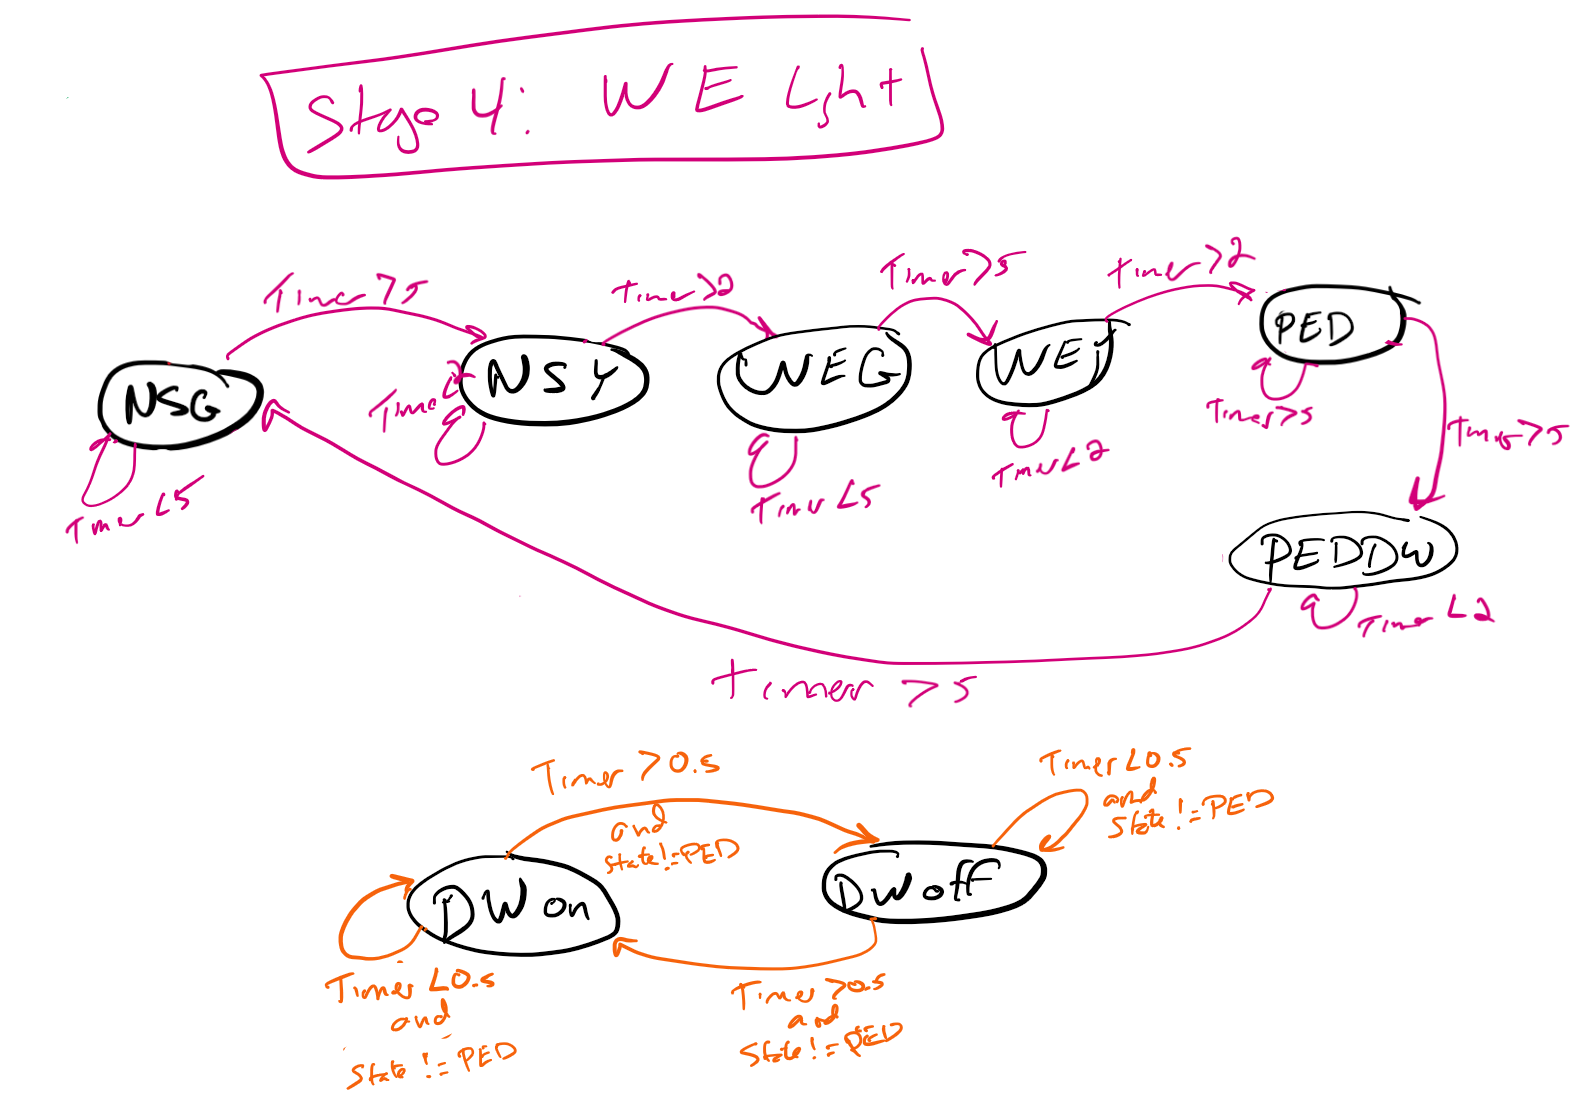 Stage 4: WE Light
Timer >5
timer >2
Timer >5
timer >2
NSG
NSY
WEG
WEY
PED
Timer <5
Timer <2
Timer <5
Timer <2
Timer >5
Timer >5
PEDDW
Timer <2
timer >5
Timer >0.5
and
State != PED
Timer <0.5
and
State != PED
DW on
DW off
Timer <0.5
and
State != PED
Timer >0.5
and
State != PED